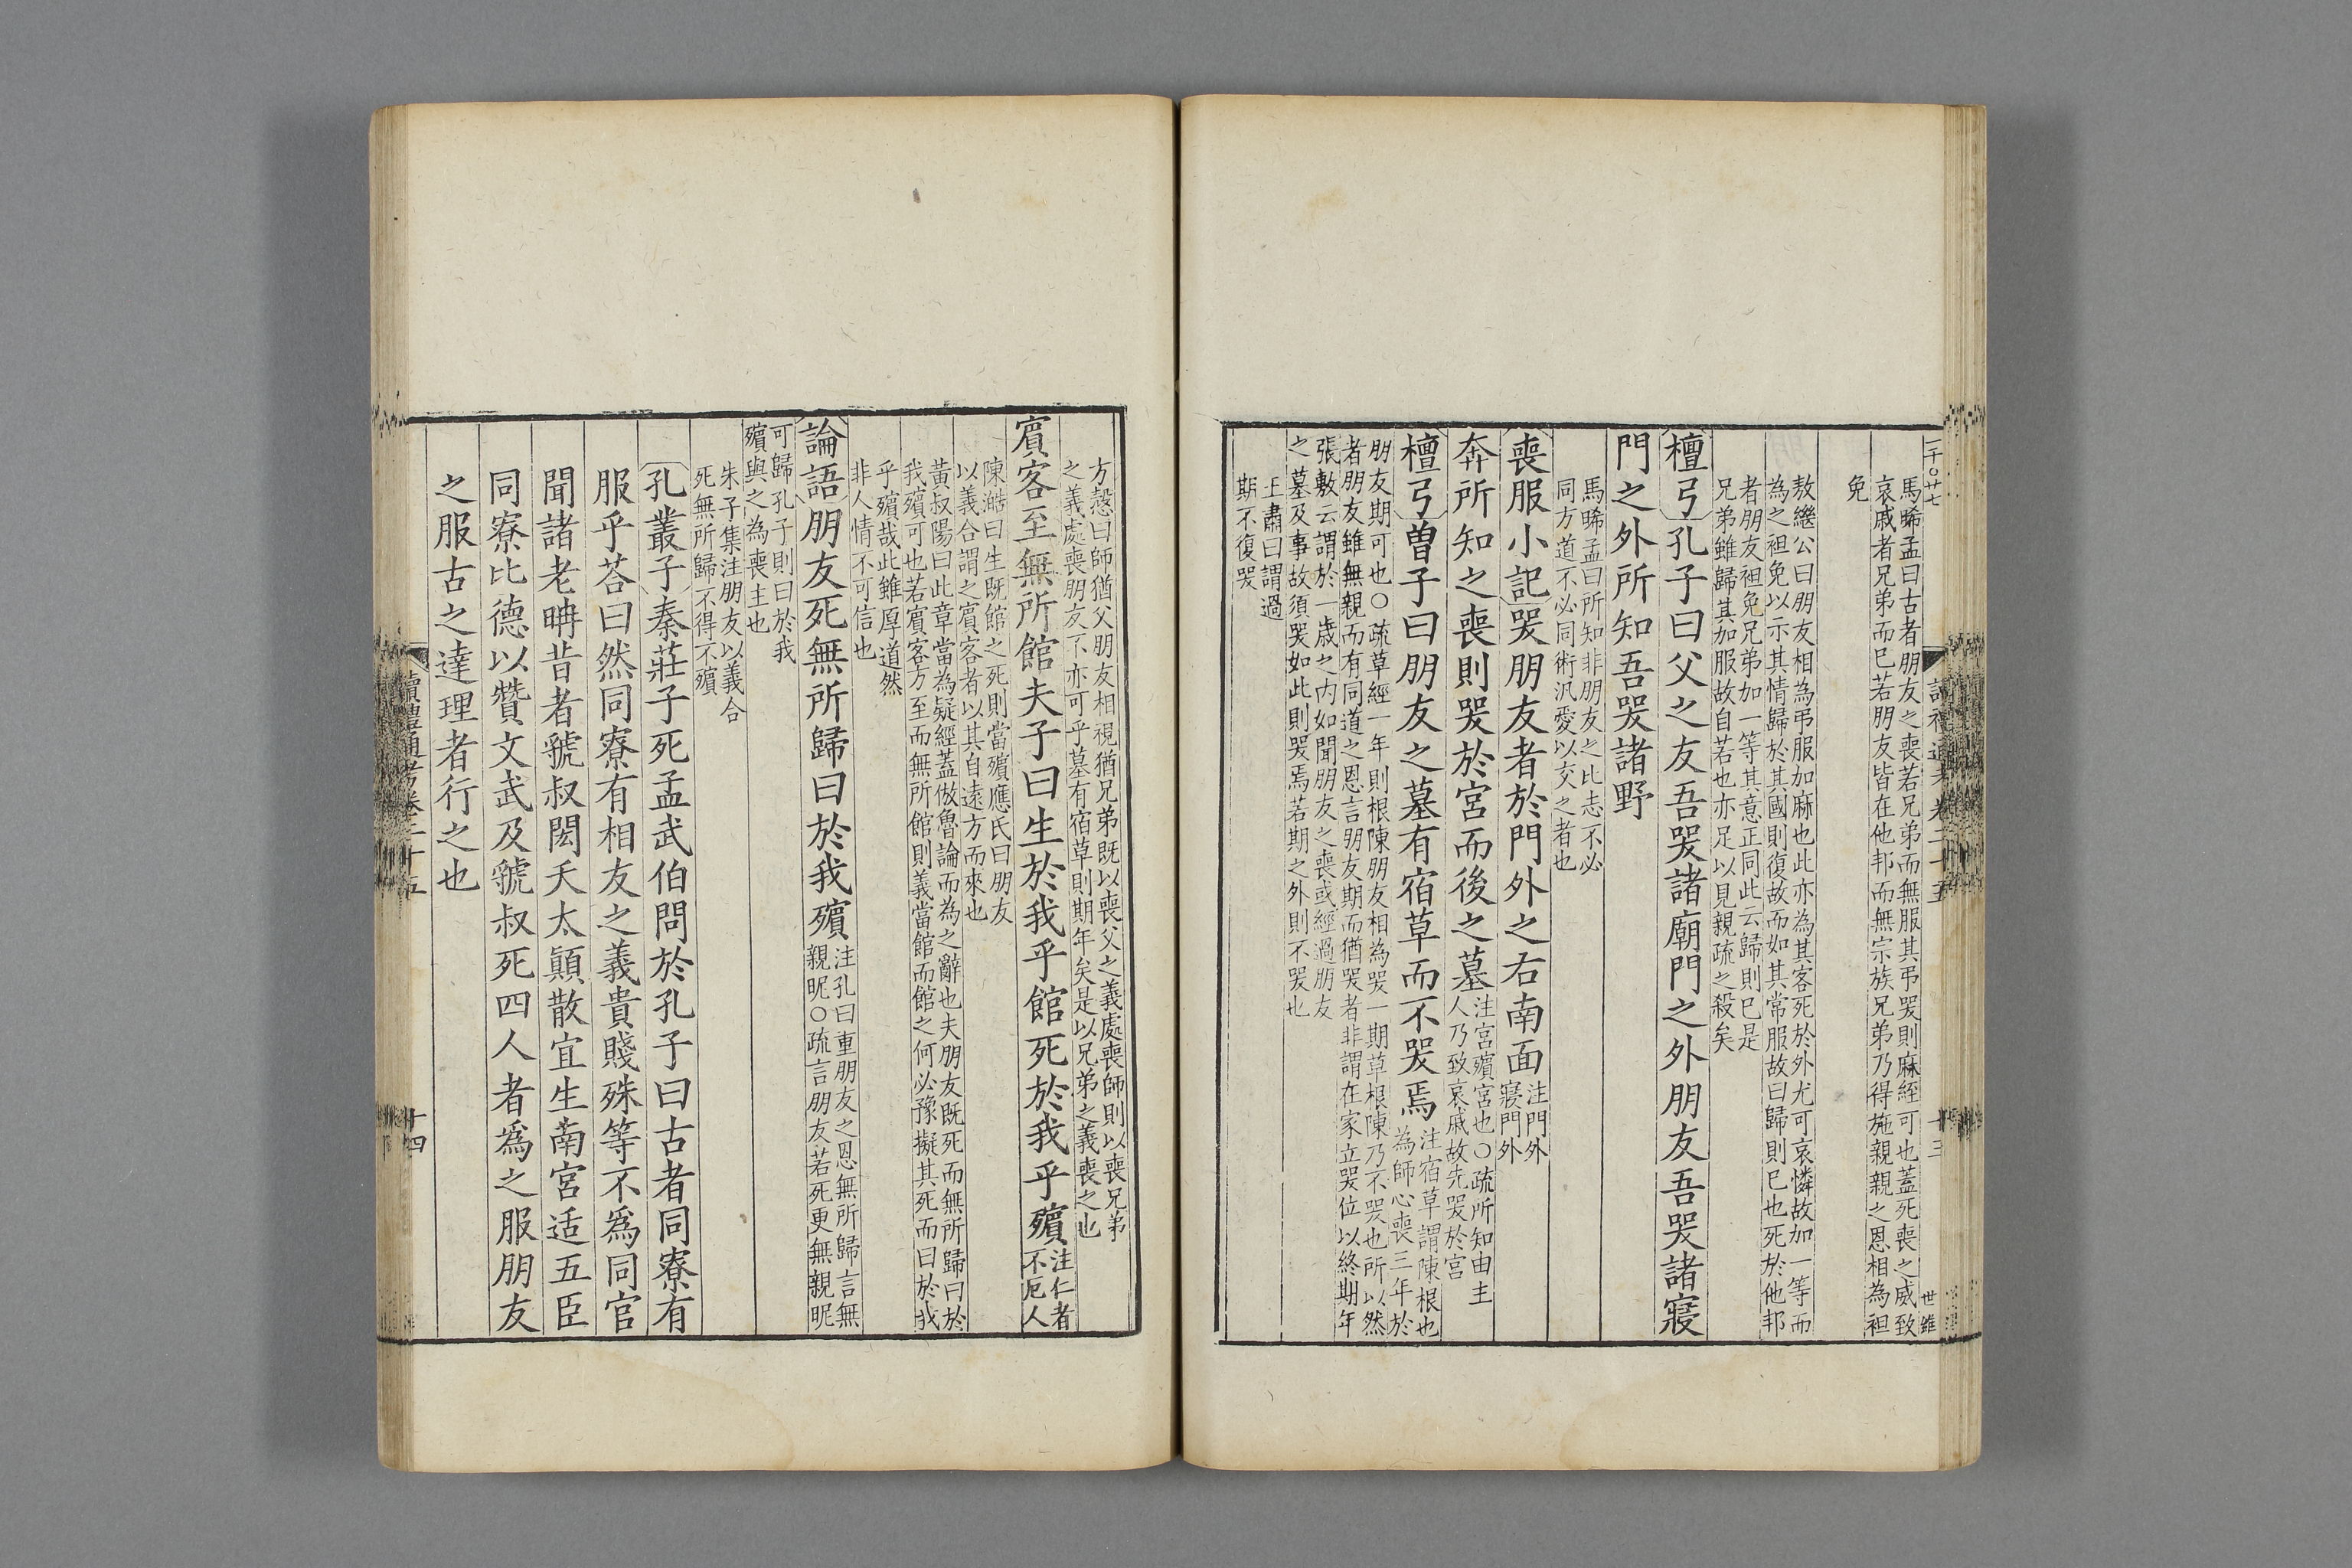 馬晞孟曰古者朋友之喪若兄弟而無服其弔哭則麻絰可也蓋死喪之威致
哀戚者兄弟而已若朋友皆在他邦而無宗族兄弟乃得施親親之恩相為袒
免
敖繼公曰朋友相為弔服加麻也此亦為其客死於外尤可哀憐故加一等而
為之袒免以示其情歸於其國則復故而如其常服故曰歸則已也死於他邦
者朋友袒免兄弟加一等其意正同此云歸則已是
兄弟雖歸其加服故自若也亦足以見親疏之殺矣
檀弓孔子曰父之友吾哭諸廟門之外朋友吾哭諸寢
門之外所知吾哭諸野
馬晞孟曰所知非朋友之比志不必
同方道不必同術汎愛以交之者也
喪服小記哭朋友者於門外之右南面
注門外
寢門外
奔所知之喪則哭於宮而後之墓
注宮殯宮也○疏所知由主
人乃致哀戚故先哭於宮
檀弓曾子曰朋友之墓有宿草而不哭焉
注宿草謂陳根也
為師心喪三年於
朋友期可也○疏草經一年則根陳朋友相為哭一期草根陳乃不哭也所以然
者朋友雖無親而有同道之恩言朋友期而猶哭者非謂在家立哭位以終期年
張敷云謂於一歲之內如聞朋友之喪或經過朋友
之墓及事故須哭如此則哭焉若期之外則不哭也
王肅曰謂過
期不復哭
世雖
十三
方愨曰師猶父朋友相視猶兄弟既以喪父之義處喪師則以喪兄弟
之義處喪朋友不亦可乎墓有宿草則期年矣是以兄弟之義喪之也
賓客至無所館夫子曰生於我乎館死於我乎殯
注仁者
不厄人
陳澔曰生既館之死則當殯應氏曰朋友
以義合謂之賓客者以其自遠方而來也
黃叔陽曰此章當為疑經蓋倣魯論而為之辭也夫朋友既死而無所歸曰於
我殯可也若賓客方至而無所館則義當館而館之何必豫擬其死而曰於我
乎殯哉此雖厚道然
非人情不可信也
論語朋友死無所歸曰於我殯
注孔曰重朋友之恩無所歸言無
親昵○疏言朋友若死更無親昵
可歸孔子則曰於我
殯與之為喪主也
朱子集注朋友以義合
死無所歸不得不殯
孔叢子秦莊子死孟武伯問於孔子曰古者同寮有
服乎荅曰然同寮有相友之義貴賤殊等不爲同官
聞諸老聃昔者虢叔閎夭太顛散宜生南宮适五臣
同寮比德以贊文武及虢叔死四人者爲之服朋友
之服古之達理者行之也
讀禮通考卷二十五
十四